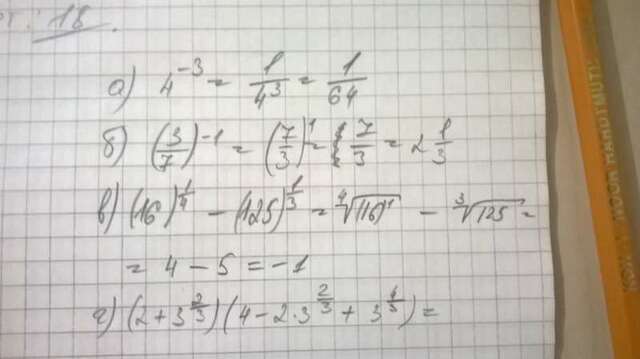 18.
а) 4^{-3} = \frac{1}{4^3} = \frac{1}{64}
б) (\frac{3}{7})^{-1} = (\frac{7}{3})^1 = \frac{7}{3} = 2\frac{1}{3}
в) (16)^{\frac{1}{4}} - (125)^{\frac{1}{3}} = \sqrt[4]{(16)^1} - \sqrt[3]{125} =
= 4 - 5 = -1
г) (2 + 3^{\frac{2}{3}})(4 - 2 \cdot 3^{\frac{2}{3}} + 3^{\frac{4}{3}}) =
KOH-I-NOOR HARDTMUTH